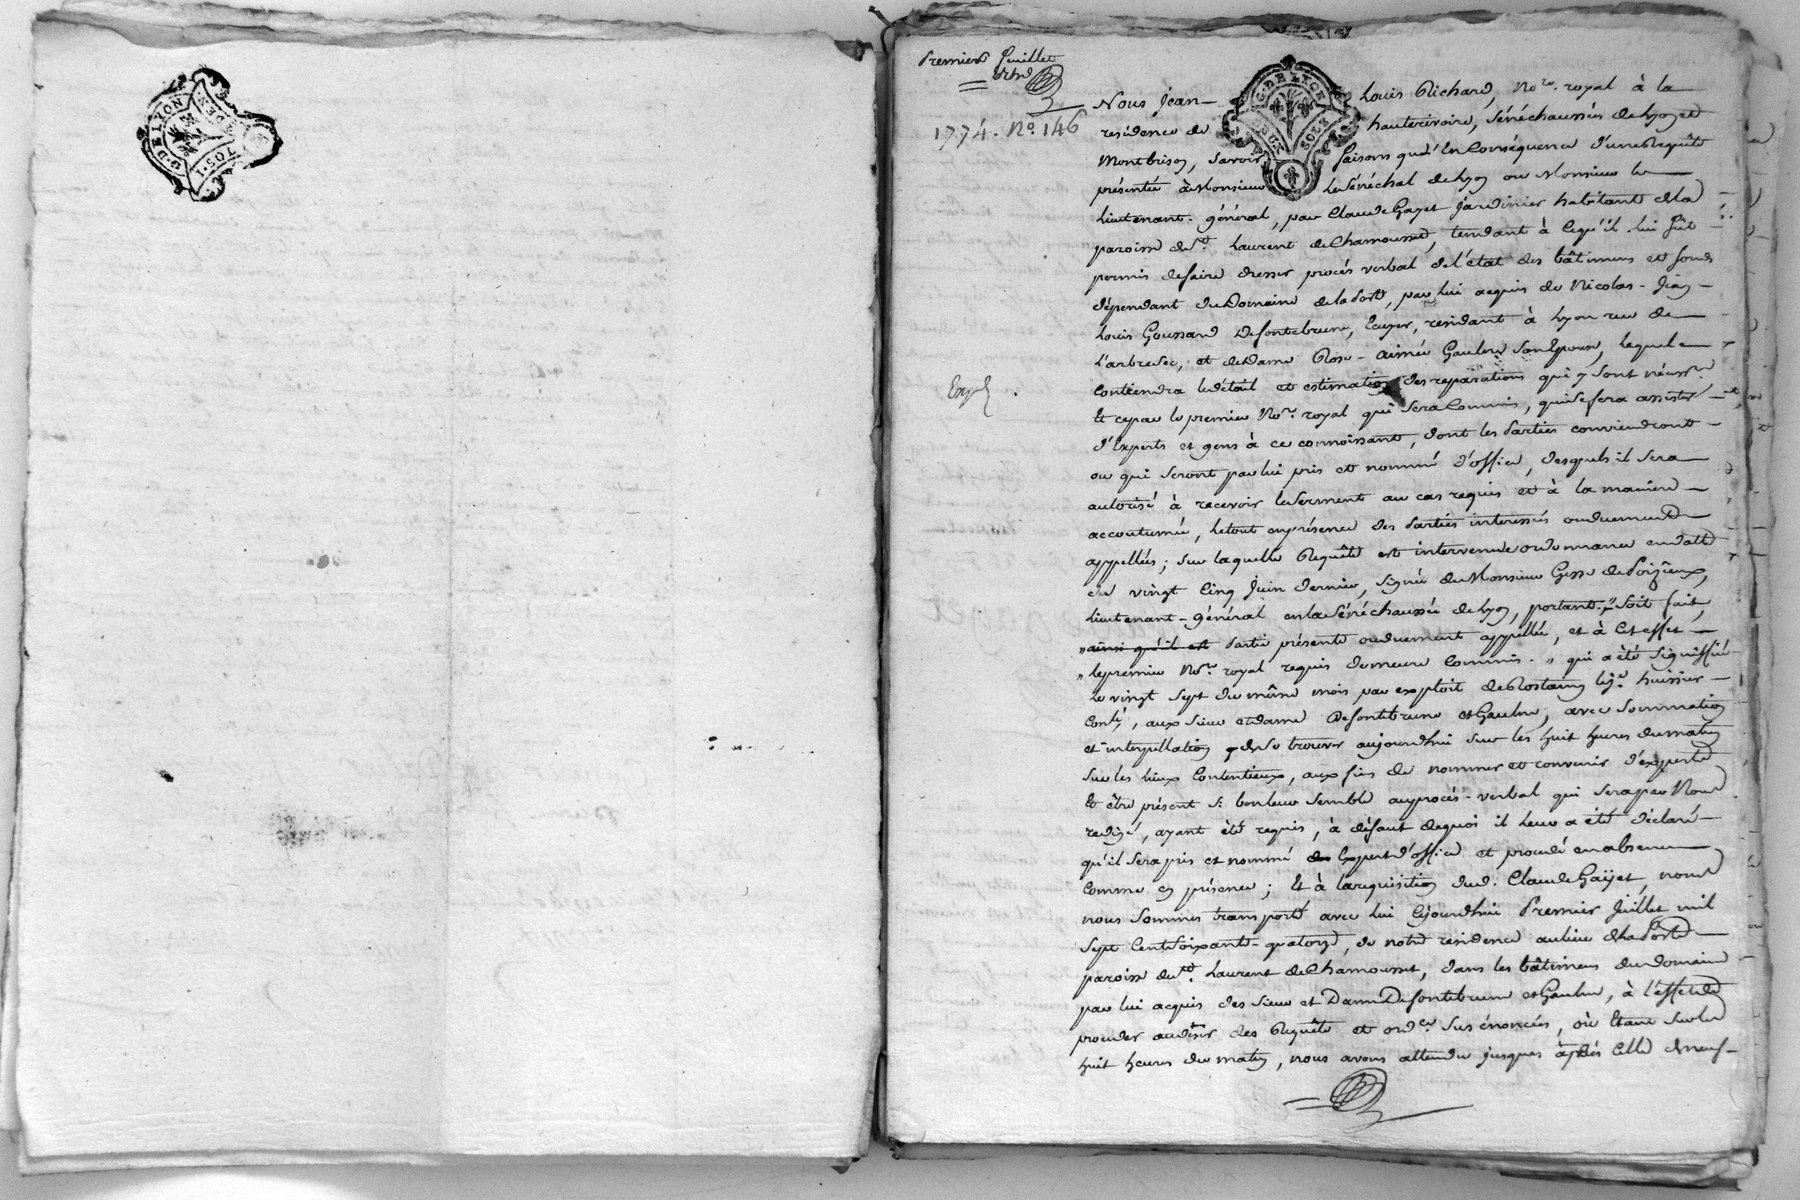 G. DE LYON
1. SOL
DEN
Premier Juillet
1774. No. 146
G. DE LYON
DEUX SOLS
Nous Jean Louis Richard, No.re royal à la
residence de hauterivoire, Sénéchaussées de Lyon et
Montbrison, Savoir faisons qu'En Conséquence d'une Requête
présentée à Monsieur le Sénéchal de Lyon ou Monsieur le
Lieutenant général, par Claude Gayet Jardinier habitant de la
paroisse de St. Laurent de Chamousset, tendant à ce qu'il lui fût
permis de faire dresser procès verbal de l'état des bâtimens et fonds
dépendant du Domaine de la Port, par lui acquis de Nicolas-Jean
Louis Goussard Defontebrune, Ecuyer, residant à Lyon rue de
L'arbre Sec, et de Dame Rose-aimée Gaulne Son Epouse, lequel
Contiendra le détail et estimation des reparations qui y sont néuss.res
Expd.
Et ce par le premier No.re royal qui Sera Commis, qui Se fera assister
d'Experts et gens à ce connoissant, dont les Parties conviendront
ou qui Seront par lui pris et nommé d'office, desquels il sera
autorisé à recevoir le Serment au cas requis et à la maniere
accoutumée, le tout en présence des Parties interessées ou duement
appellées; Sur laquelle Requête est intervenue ordonnance en datte
du vingt Cinq Juin dernier, Signée de Monsieur Gesse de Poizieux,
Lieutenant-général en la Sénéchaussée de Lyon, portant: " Soit fait,
" ainsi qu'il est Partie présente ou duement appellée, et à Cet effet
" le premier No.re royal requis demeure Commis. " qui a été Signiffiée
Le vingt Sept du même mois, par exploit de Rostaing huissier
aux Sieur et dame Defontebrune et Gaulne, avec Sommation
et interpellation de Se trouver aujourdhui Sur les huit heures du matin
Sur les lieux Contentieux, aux fins de nommer et convenir d'experts
Et être présent Si bon leur Semble au procès-verbal qui Sera par Nous
redigé, ayant été requis, à défaut de quoi il leur a été déclaré
qu'il Sera pris et nommé Expert d'office et procédé en absence
Comme en présence; Et à la requisition dud. Claude Gaÿet, nous
nous Sommes transporté avec lui Cejourdhui Premier Juillet mil
Sept Cent Soixante-quatorze, de notre residence au lieu de la Port
paroisse de St. Laurent de Chamousset, dans les bâtimens du domaine
par lui acquis des Sieur et Dame Defontebrune et Gaulne, à l'effet de
proceder au désir des Requête et ord.ce Sus énoncées, où Etant Sur les
huit heures du matin, nous avons attendu jusques après Celle de neuf